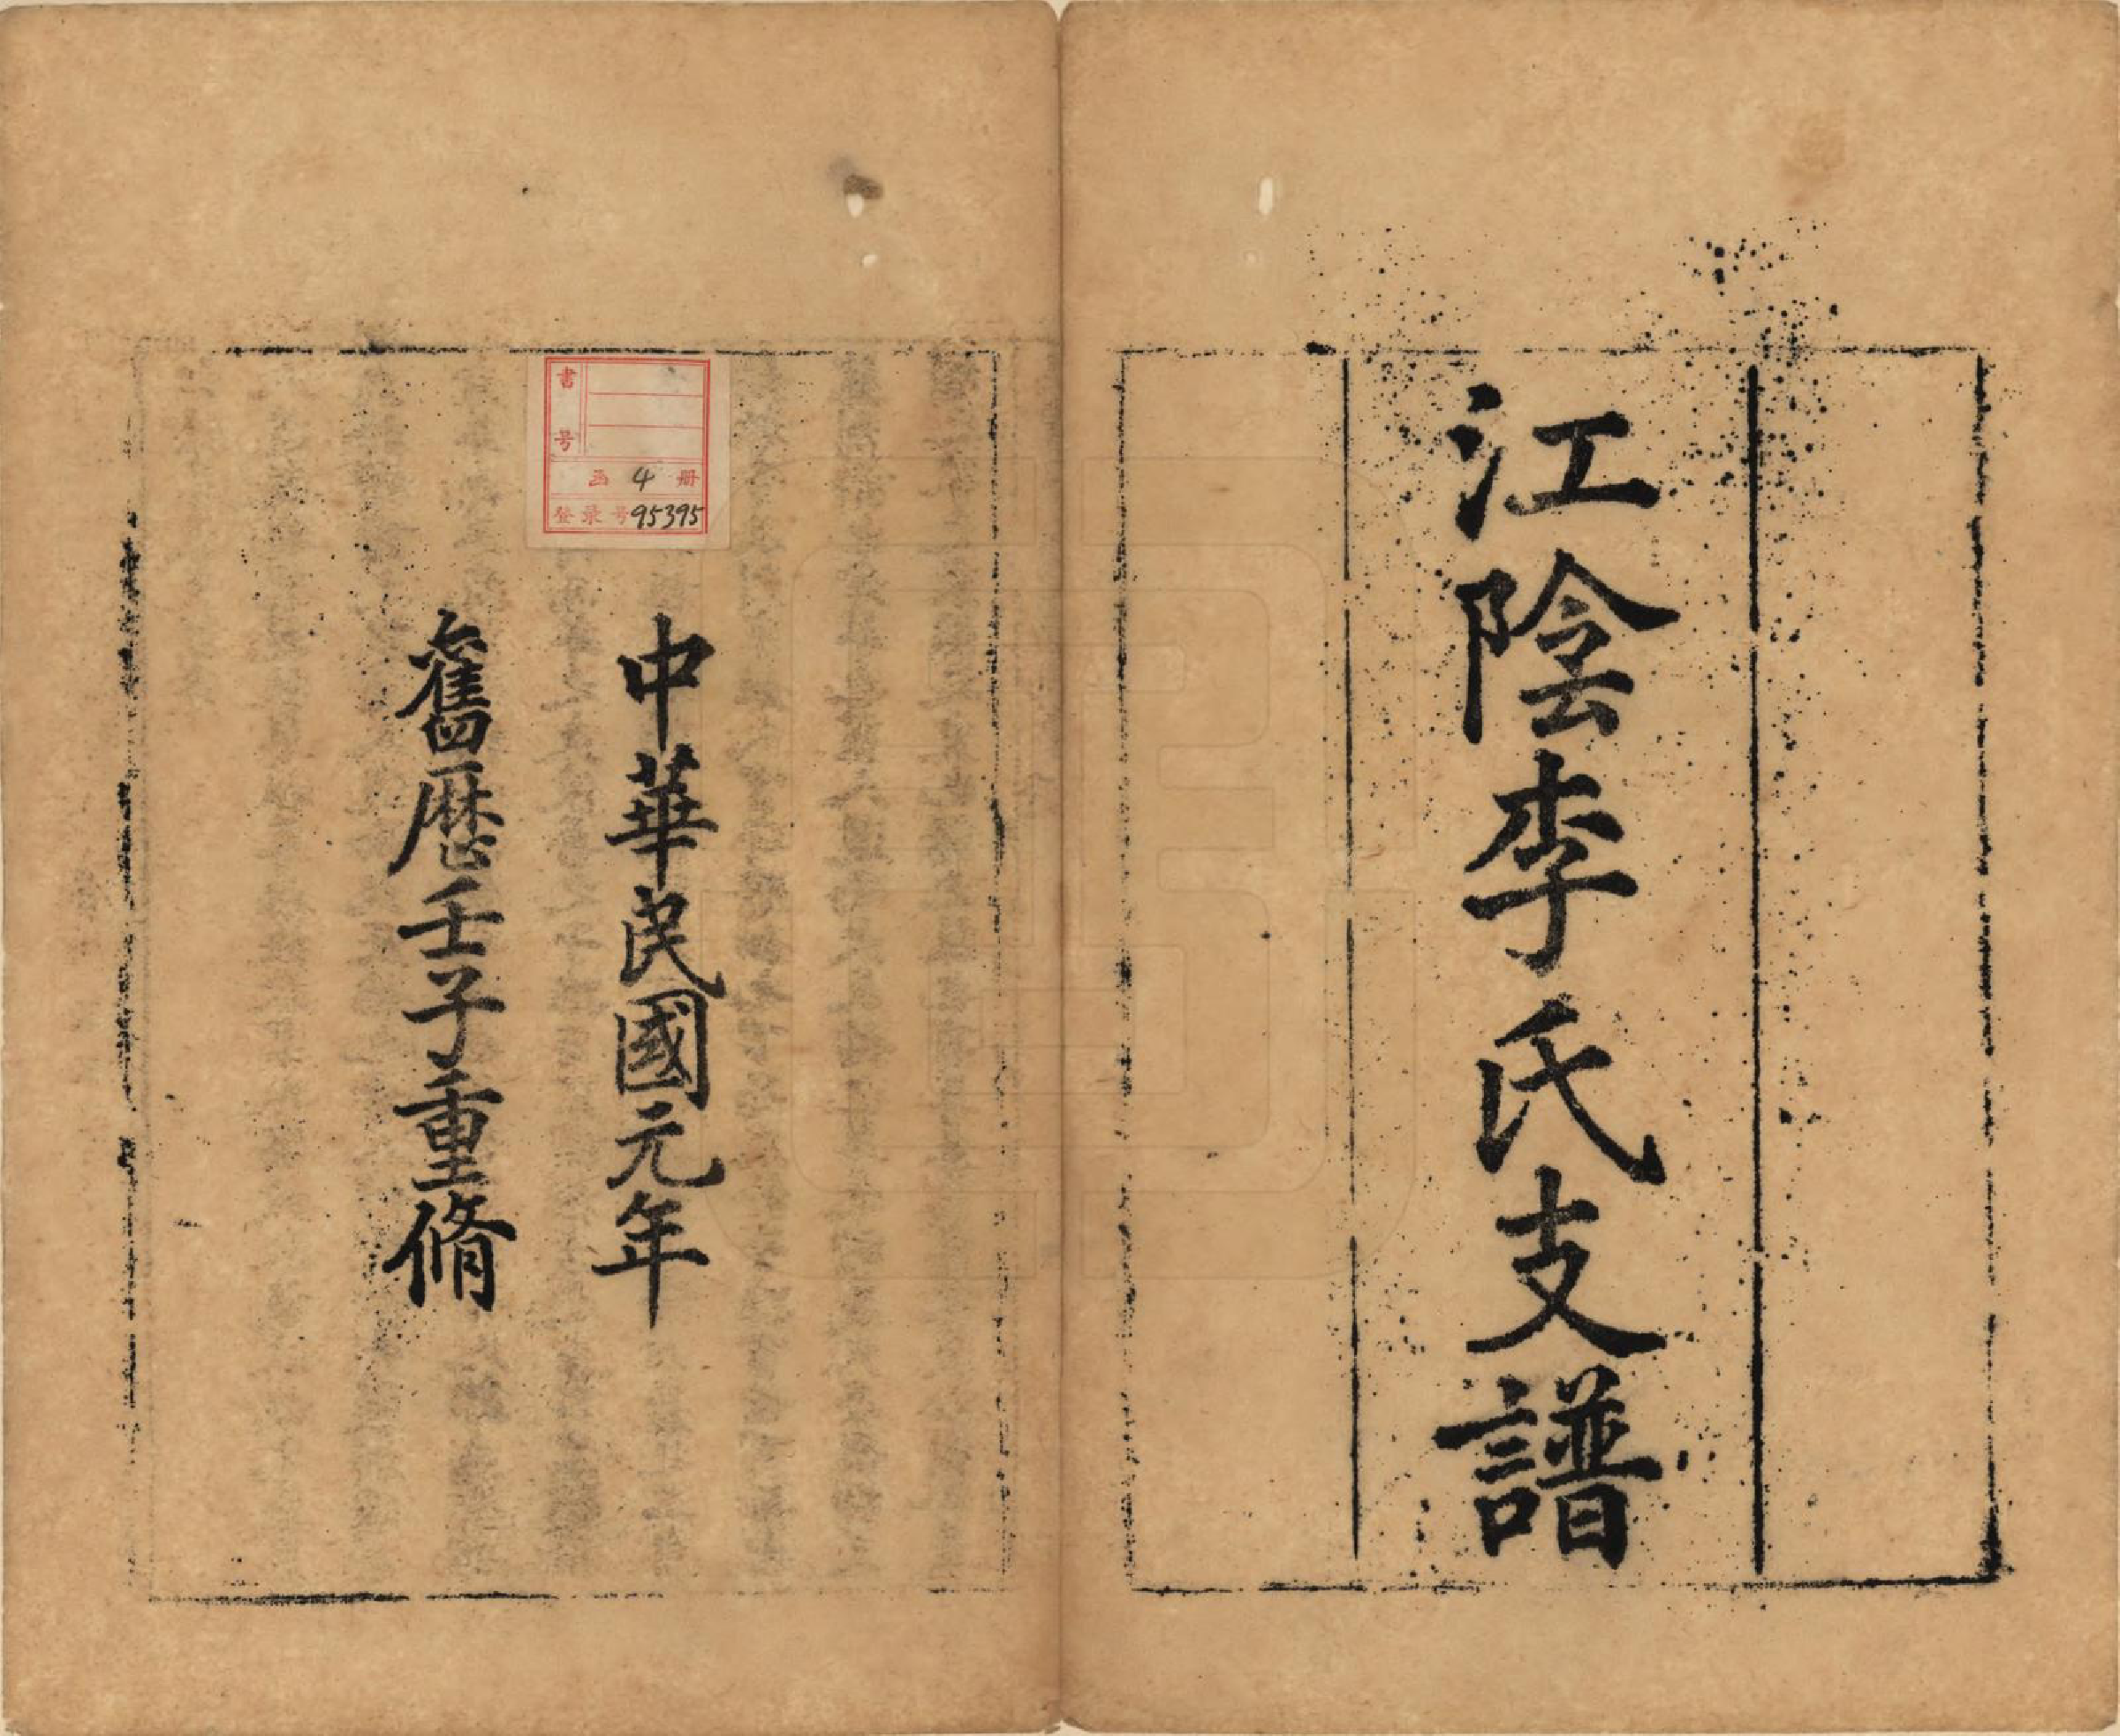 江陰李氏支譜
中華民國元年
舊歷壬子重脩
書号
函 4 册
登录号 95395